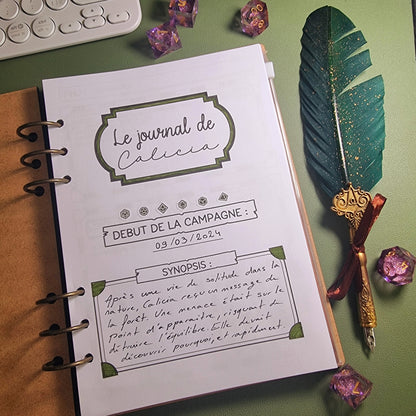 Le journal de
Calicia
DEBUT DE LA CAMPAGNE :
09/03/2024
SYNOPSIS :
Après une vie de solitude dans la
nature, Calicia reçu un message de
la forêt. Une menace était sur le
point d'apparaître, risquant de
détruire l'équilibre. Elle devait
découvrir pourquoi, et rapidement.